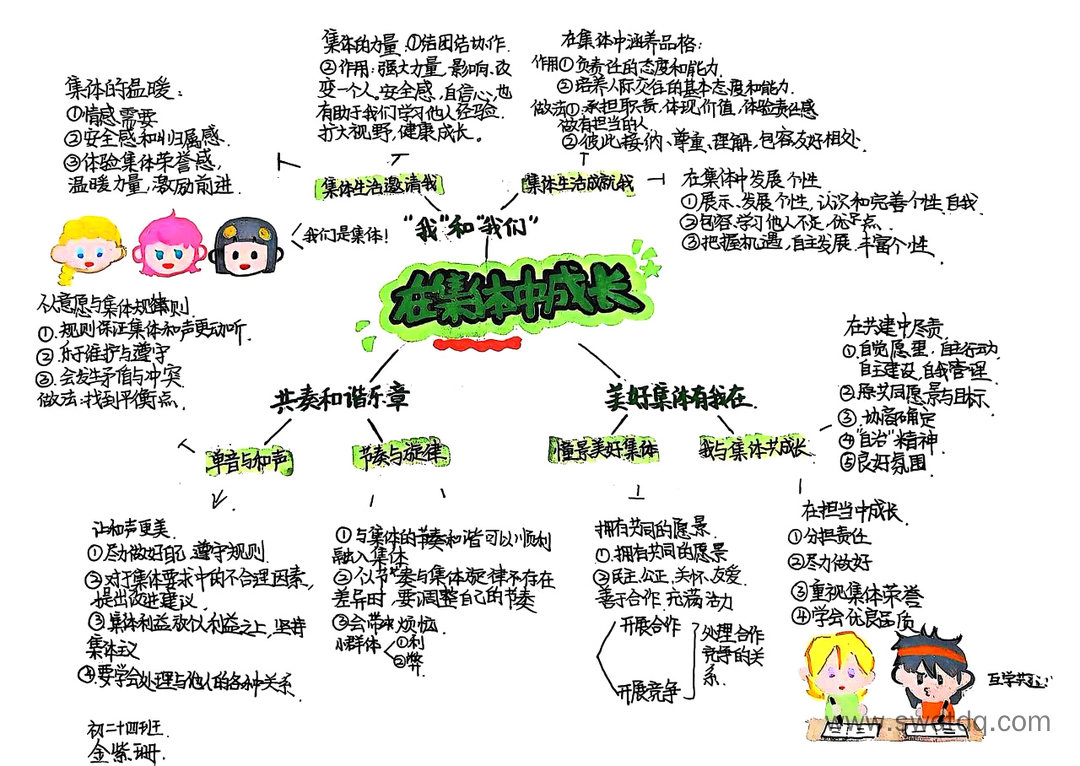 集体的力量:①结团结协作.
②作用:强大力量,影响、改
变一个人,安全感,自信心,也
有助于我们学习他人经验.
扩大视野,健康成长。
在集体中涵养品格:
作用①负责任的态度和能力.
②培养人际交往的基本态度和能力.
做法①.承担职责,体现价值,体验责任感
做有担当的人
②彼此接纳、尊重、理解,包容友好相处.
集体的温暖:
①情感需要
②安全感和归属感.
③体验集体荣誉感,
温暖力量,激励前进.
集体生活邀请我
集体生活成就我
在集体中发展个性
①展示、发展个性,认识和完善个性,自我
②包容,学习他人不足,优点.
③把握机遇,自主发展,丰富个性.
我们是集体!
"我"和"我们"
在集体中成长
个人意愿与集体规则
①.规则保证集体和声更动听.
②.乐于维护与遵守
③.会发生矛盾与冲突.
做法:找到平衡点.
共奏和谐乐章
美好集体有我在.
在共建中尽责
①自觉愿望,自主行动.
自主建设,自我管理
②愿共同愿景与目标.
③协商确定
④"自治"精神
⑤良好氛围
单音与和声
节奏与旋律
憧景美好集体
我与集体共成长
让和声更美
①尽力做好自己,遵守规则.
②对于集体要求中的不合理因素,
提出改进建议.
③集体利益放个人利益之上,坚持
集体主义
④要学会处理与他人的各种关系.
①与集体的节奏和谐可以顺利
融入集体
②个人节奏与集体旋律不存在
差异时,要调整自己的节奏
③会带来烦恼.
小群体
①利
②弊
拥有共同的愿景.
①.拥有共同的愿景
②民主、公正、关怀、友爱.
善于合作,充满活力
开展合作
开展竞争
处理合作
竞争的关
系.
在担当中成长.
①分担责任
②尽力做好
③重视集体荣誉
④学会优良品质
互学共
初二十四班
金紫珊.
www.swdtdq.com